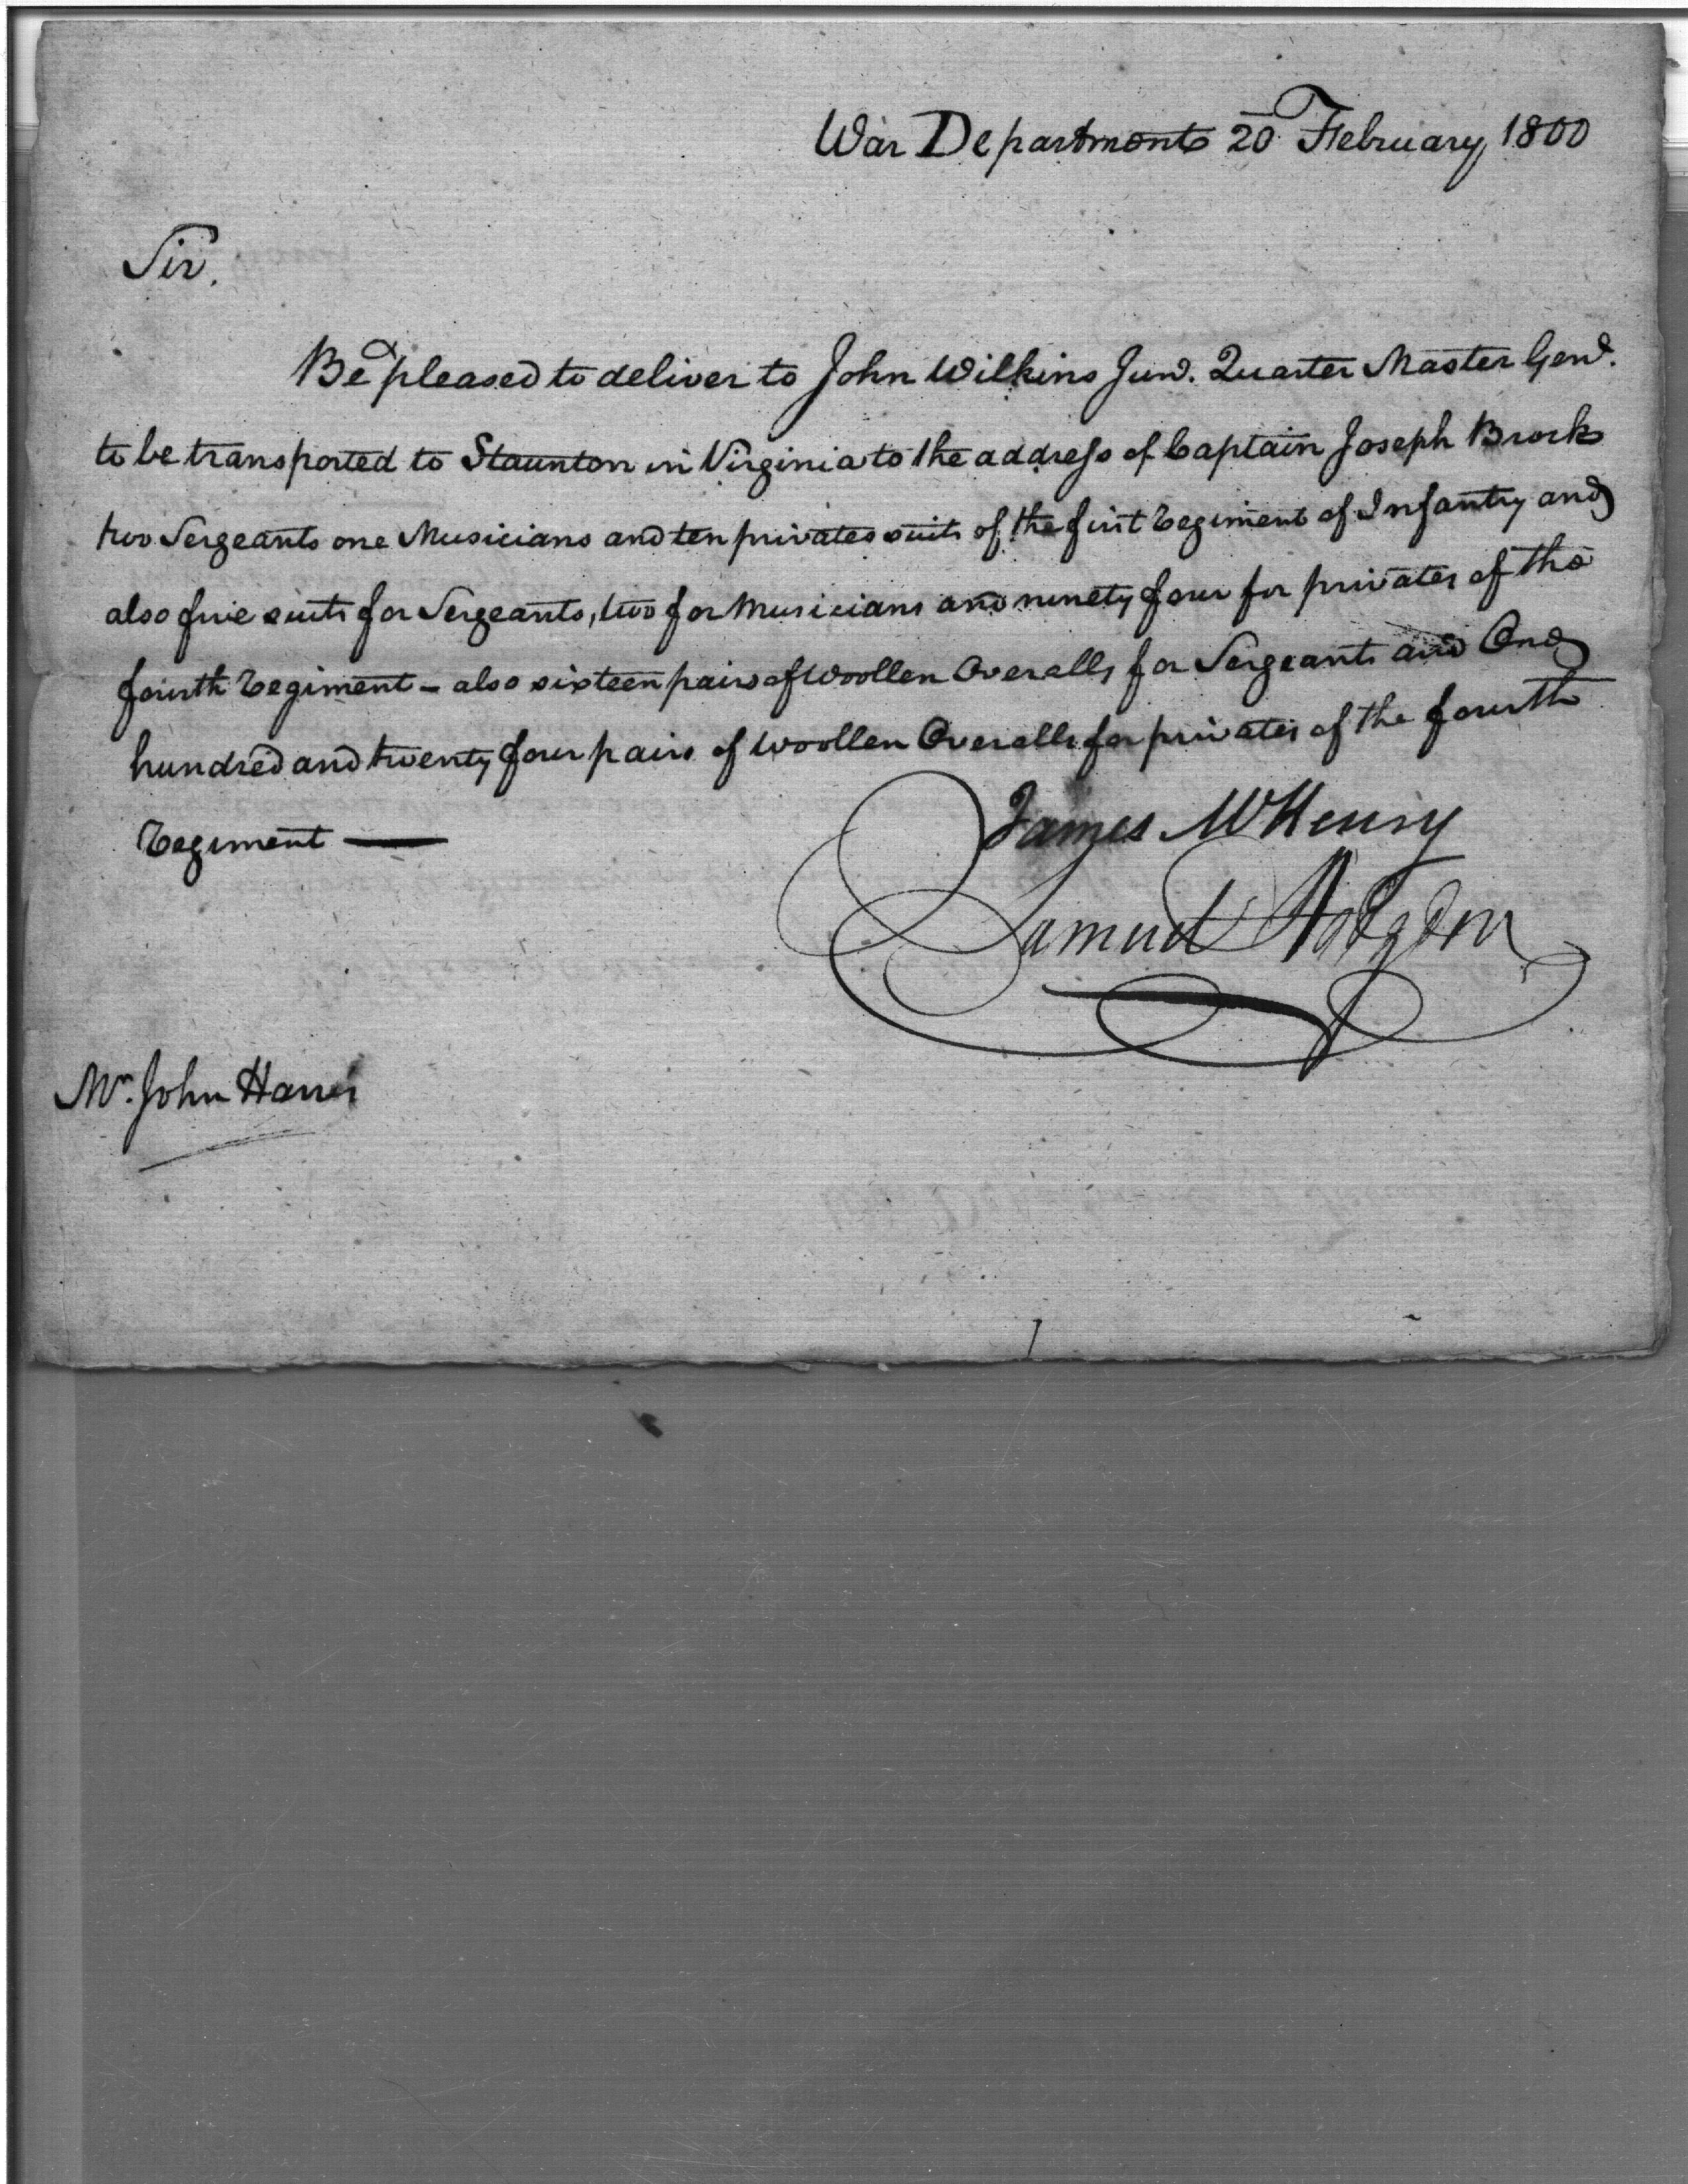 War Department 20 February 1800
Sir.
Be pleased to deliver to John Wilkins Junr. Quarter Master Genl.
to be transported to Staunton in Virginia to the address of Captain Joseph Brock
two Sergeants one Musicians and ten privates suits of the first regiment of Infantry and
also five suits for Sergeants, two for Musicians and ninety four for privates of the
fourth regiment - also sixteen pairs of Woollen Overalls for Sergeants and One
hundred and twenty four pairs of Woollen Overalls for privates of the fourth
regiment —
James McHenry
Samuel Hodgdon
Mr. John Harris